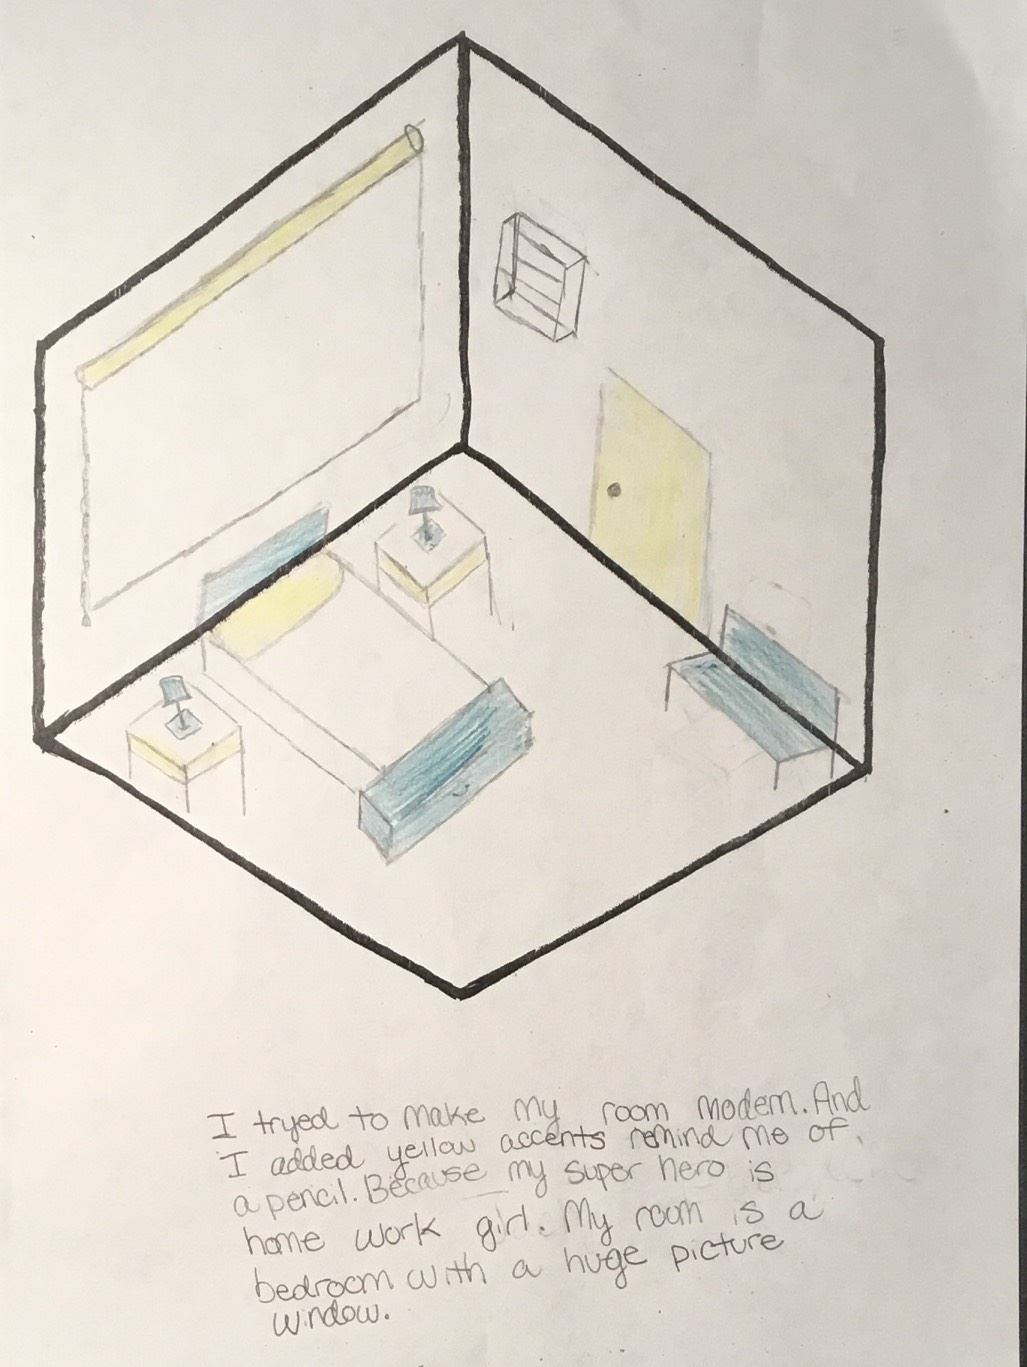 I tryed to make my room modern. And
I added yellow accents remind me of
a pencil. Because my super hero is
home work girl. My room is a
bedroom with a huge picture
window.